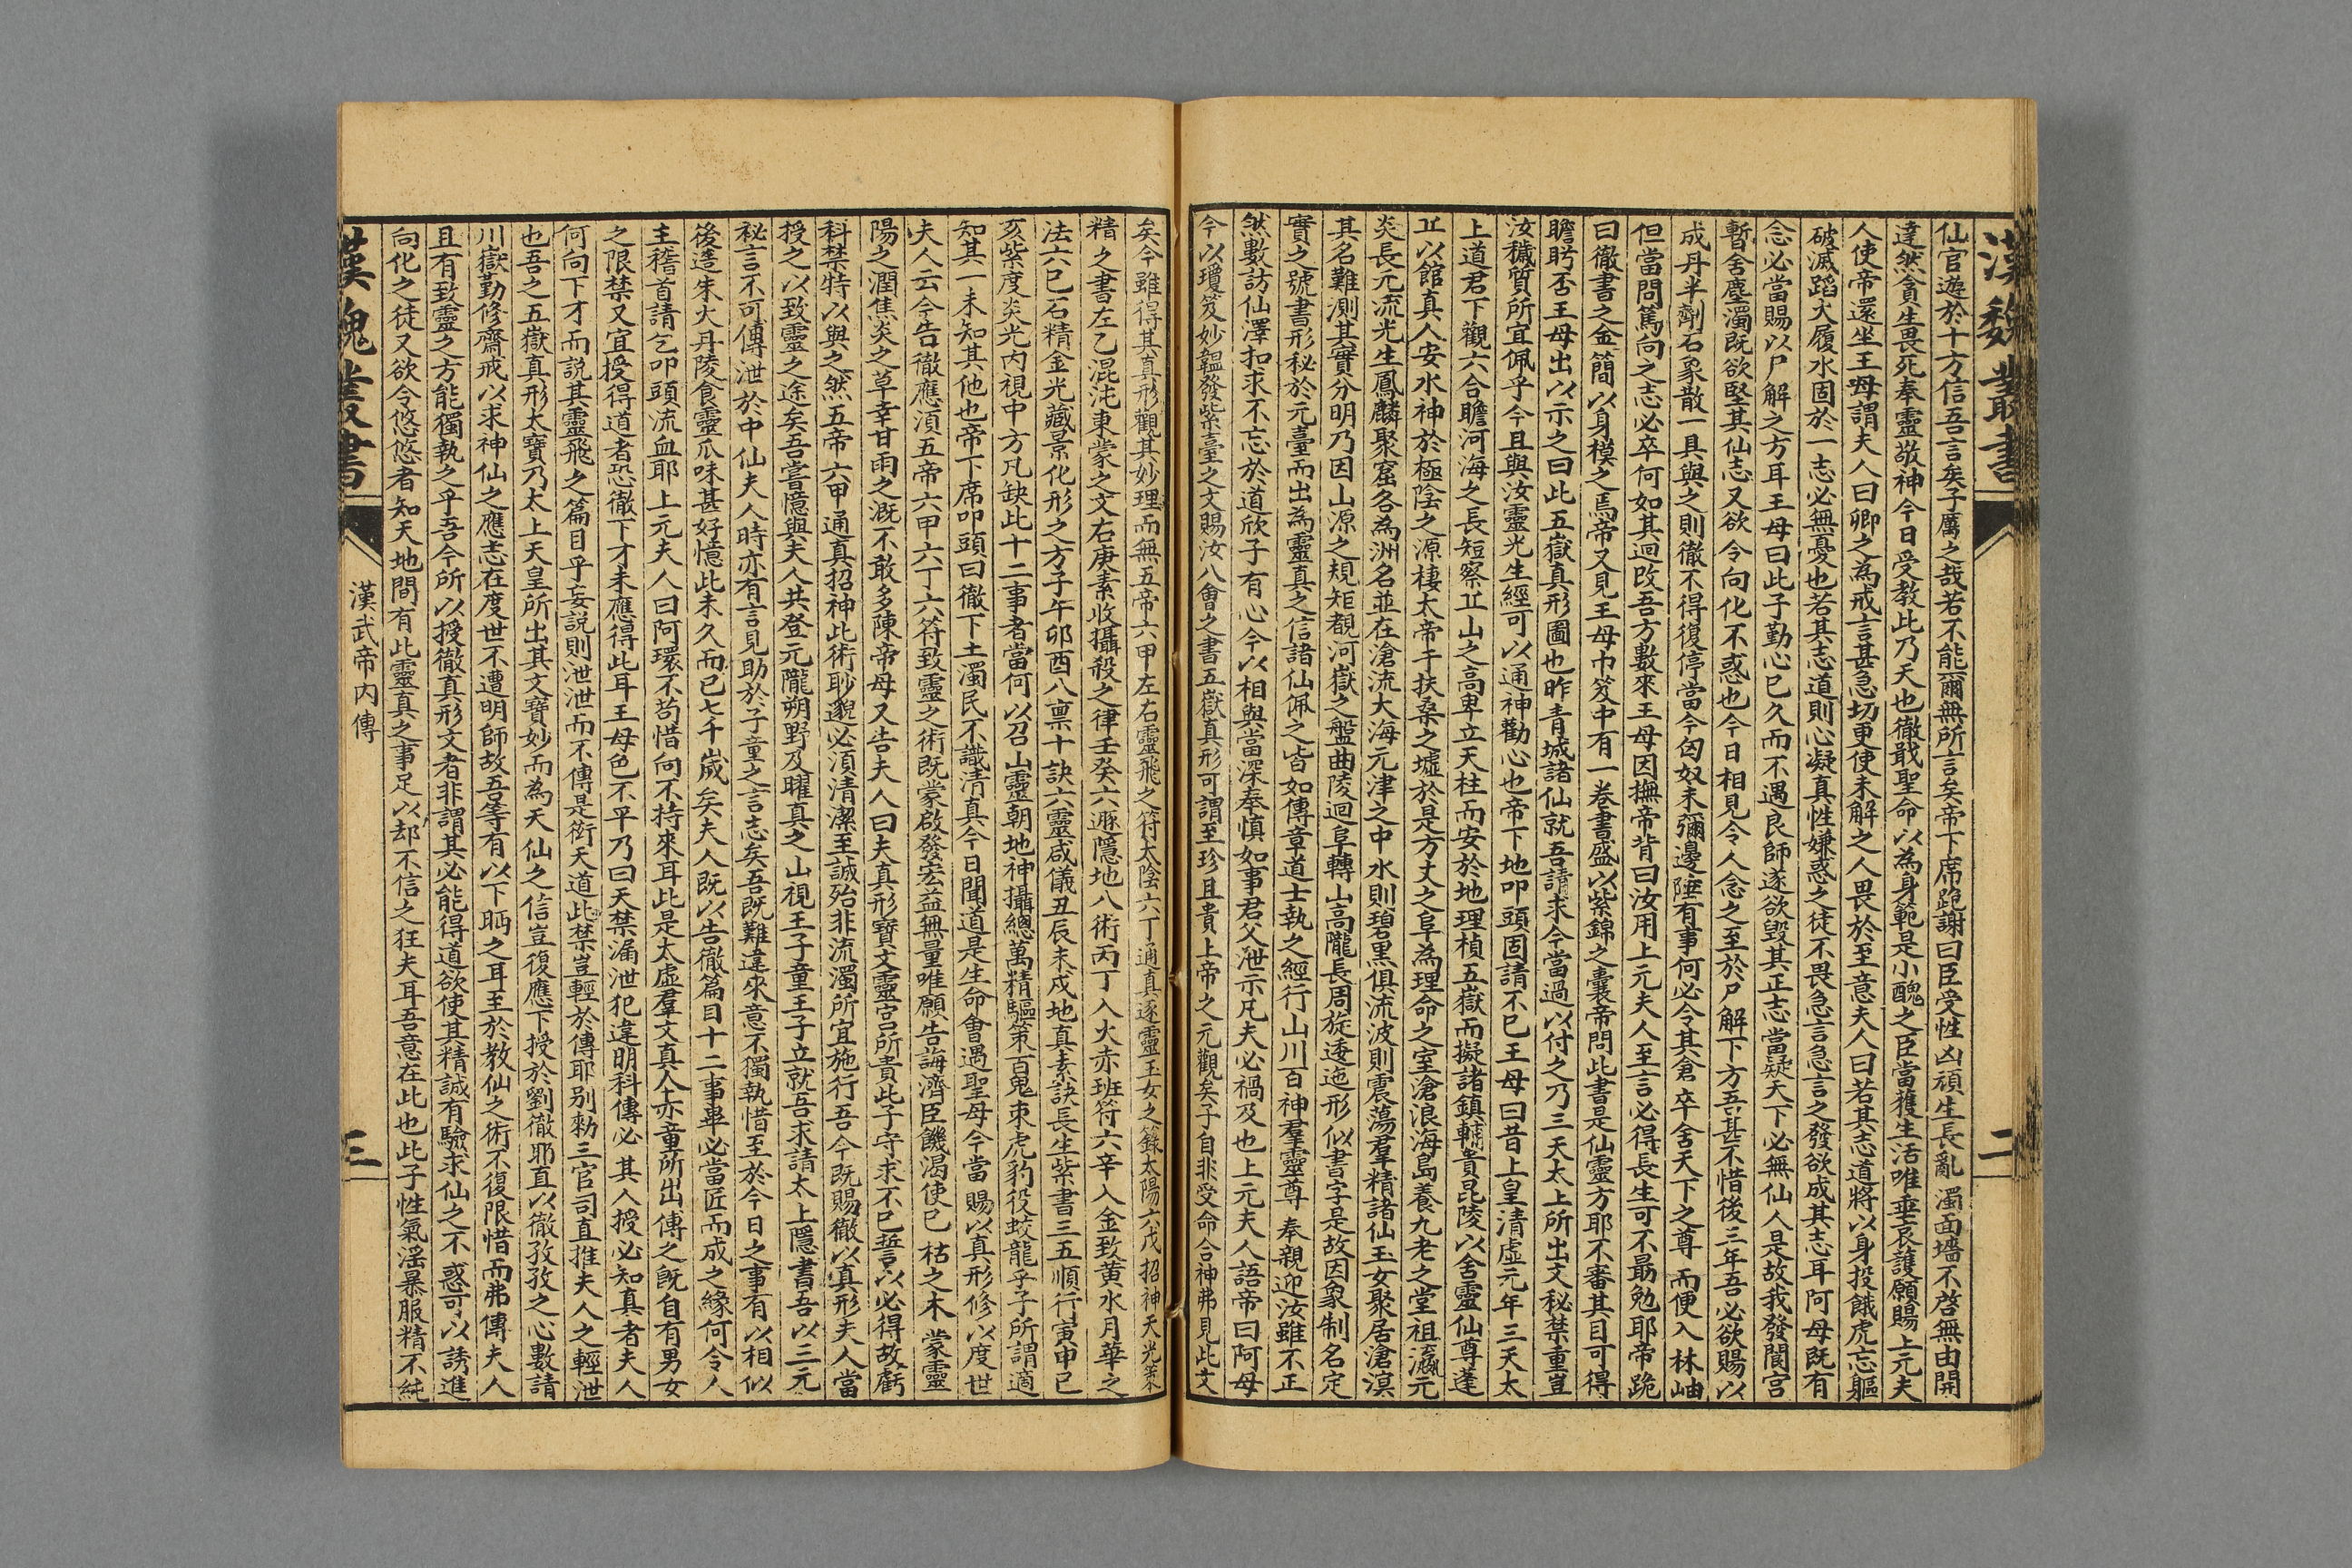 漢魏叢書
二
仙官遊於十方信吾言矣子厲之哉若不能爾無所言矣帝下席跪謝曰臣受性凶頑生長亂濁面墻不啓無由開
達然貪生畏死奉靈敬神今日受教此乃天也徹戢聖命以為身範是小醜之臣當獲生活唯垂哀護願賜上元夫
人使帝還坐王母謂夫人曰卿之為戒言甚急切更使未解之人畏於至意夫人曰若其志道將以身投餓虎忘軀
破滅蹈火履水固於一志必無憂也若其志道則心凝真性嫌惑之徒不畏急言急言之發欲成其志耳阿母既有
念必當賜以尸解之方耳王母曰此子勤心已久而不遇良師遂欲毀其正志當疑天下必無仙人是故我發閬宮
暫舍塵濁既欲堅其仙志又欲令向化不惑也今日相見令人念之至於尸解下方吾甚不惜後三年吾必欲賜以
成丹半劑石象散一具與之則徹不得復停當今匈奴未彌邊陲有事何必令其倉卒舍天下之尊而便入林岫
但當問篤向之志必卒何如其迴改吾方數來王母因撫帝背曰汝用上元夫人至言必得長生可不勗勉耶帝跪
曰徹書之金簡以身模之焉帝又見王母巾笈中有一卷書盛以紫錦之囊帝問此書是仙靈方耶不審其目可得
瞻眄否王母出以示之曰此五嶽真形圖也昨青城諸仙就吾請求今當過以付之乃三天太上所出文秘禁重豈
汝穢質所宜佩乎今且與汝靈光生經可以通神勸心也帝下地叩頭固請不已王母曰昔上皇清虛元年三天太
上道君下觀六合瞻河海之長短察丘山之高卑立天柱而安於地理植五嶽而擬諸鎮輔貴昆陵以舍靈仙尊蓬
丘以館真人安水神於極陰之源棲太帝于扶桑之墟於是方丈之阜為理命之室滄浪海島養九老之堂祖瀛元
炎長元流光生鳳麟聚窟各為洲名並在滄流大海元津之中水則碧黑俱流波則震蕩羣精諸仙玉女聚居滄溟
其名難測其實分明乃因山源之規矩覩河嶽之盤曲陵迴阜轉山高隴長周旋逶迤形似書字是故因象制名定
實之號書形秘於元臺而出為靈真之信諸仙佩之皆如傳章道士執之經行山川百神羣靈尊奉親迎汝雖不正
然數訪仙澤扣求不忘於道欣子有心今以相與當深奉慎如事君父泄示凡夫必禍及也上元夫人語帝曰阿母
今以瓊笈妙韞發紫臺之文賜汝八會之書五嶽真形可謂至珍且貴上帝之元觀矣子自非受命合神弗見此文
矣今雖得其真形觀其妙理而無五帝六甲左右靈飛之符太陰六丁通真逐靈玉女之籙太陽六戊招神天光策
精之書左乙混沌東蒙之文右庚素收攝殺之律壬癸六遯隱地八術丙丁入火赤班符六辛入金致黄水月華之
法六巳石精金光藏景化形之方子午卯酉八禀十訣六靈咸儀丑辰未戌地真素訣長生紫書三五順行寅申巳
亥紫度炎光内視中方凡缺此十二事者當何以召山靈朝地神攝總萬精驅策百鬼束虎豹役蛟龍乎子所謂適
知其一未知其他也帝下席叩頭曰徹下土濁民不識清真今日聞道是生命會遇聖母今當賜以真形修以度世
夫人云今告徹應湏五帝六甲六丁六符致靈之術既蒙啟發宏益無量唯願告誨濟臣饑渴使已枯之木蒙靈
陽之潤焦炎之草幸甘雨之溉不敢多陳帝母又告夫人曰夫真形寶文靈宮所貴此子守求不已誓以必得故虧
科禁特以與之然五帝六甲通真招神此術眇邈必湏清潔至誠殆非流濁所宜施行吾今既賜徹以真形夫人當
授之以致靈之途矣吾嘗憶與夫人共登元隴朔野及曜真之山視王子童王子立就吾求請太上隱書吾以三元
祕言不可傳泄於中仙夫人時亦有言見助於子童之言志矣吾既難違來意不獨執惜至於今日之事有以相似
後造朱火丹陵食靈瓜味甚好憶此未久而已七千歲矣夫人既以告徹篇目十二事畢必當匠而成之緣何令人
主稽首請乞叩頭流血耶上元夫人曰阿環不苟惜向不持來耳此是太虛羣文真人赤童所出傳之既自有男女
之限禁又宜授得道者恐徹下才未應得此耳王母色不平乃曰天禁漏泄犯違明科傳必其人授必知真者夫人
何向下才而説其靈飛之篇目乎妄説則泄泄而不傳是衒天道此禁豈輕於傳耶别勑三官司直推夫人之輕泄
也吾之五嶽真形太寶乃太上天皇所出其文寶妙而為天仙之信豈復應下授於劉徹耶直以徹孜孜之心數請
川嶽勤修齋戒以求神仙之應志在度世不遭明師故吾等有以下眄之耳至於教仙之術不復限惜而弗傳夫人
且有致靈之方能獨執之乎吾今所以授徹真形文者非謂其必能得道欲使其精誠有驗求仙之不惑可以誘進
向化之徒又欲令悠悠者知天地間有此靈真之事足以却不信之狂夫耳吾意在此也此子性氣淫暴服精不純
漢魏叢書
漢武帝内傳
三